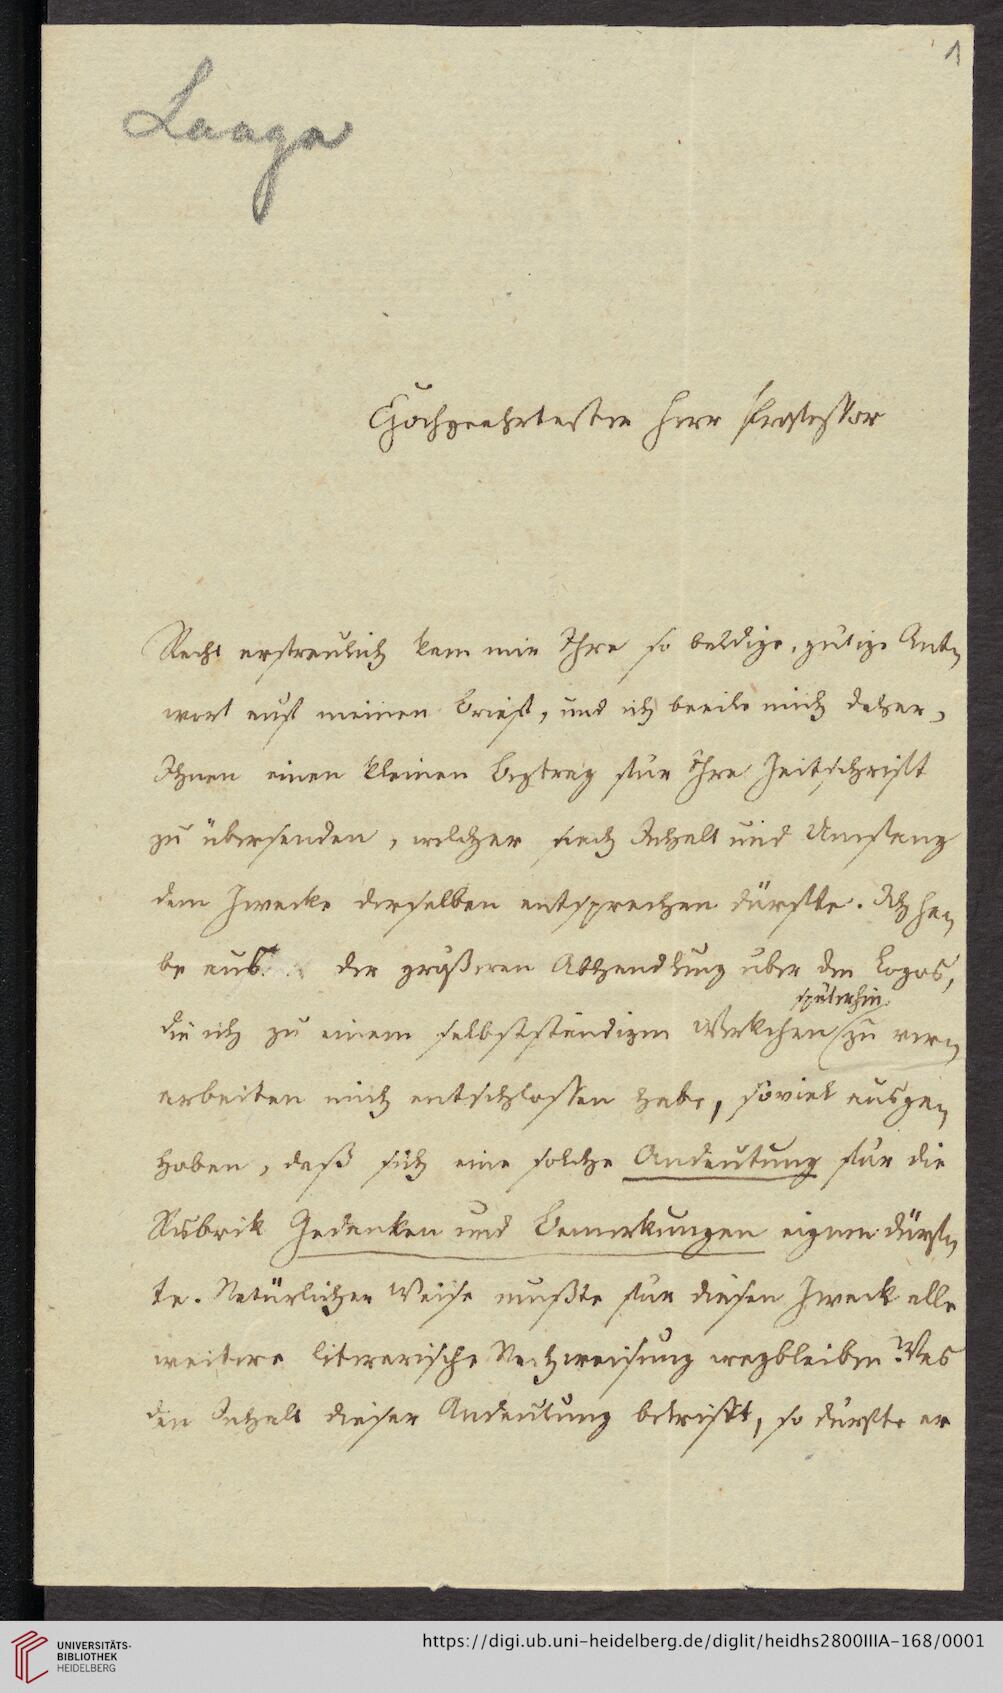 1
Lange
Hochgeehrtester Herr Professor
Recht erfreulich kam mir Ihre so baldige, gütige Ant-
wort auf meinen Brief, und ich beeile mich daher,
Ihnen einen kleinen Beytrag für Ihre Zeitschrift
zu übersenden, welcher nach Inhalt und Umfang
dem Zwecke derselben entsprechen dürfte. Ich ha-
be aus der größeren Abhandlung über den Logos,
späterhin
die ich zu einem selbstständigen Werkchen zu ver-
arbeiten mich entschlossen habe, soviel ausge-
hoben, daß sich eine solche Andeutung für die
Rubrik Gedanken und Bemerkungen eignen dürf-
te. Natürlicher Weise mußte für diesen Zweck alle
weitere literarische Nachweisung wegbleiben. Was
den Inhalt dieser Andeutung betrifft, so dürfte er
UNIVERSITÄTS-
BIBLIOTHEK
HEIDELBERG
https://digi.ub.uni-heidelberg.de/diglit/heidhs2800IIIA-168/0001